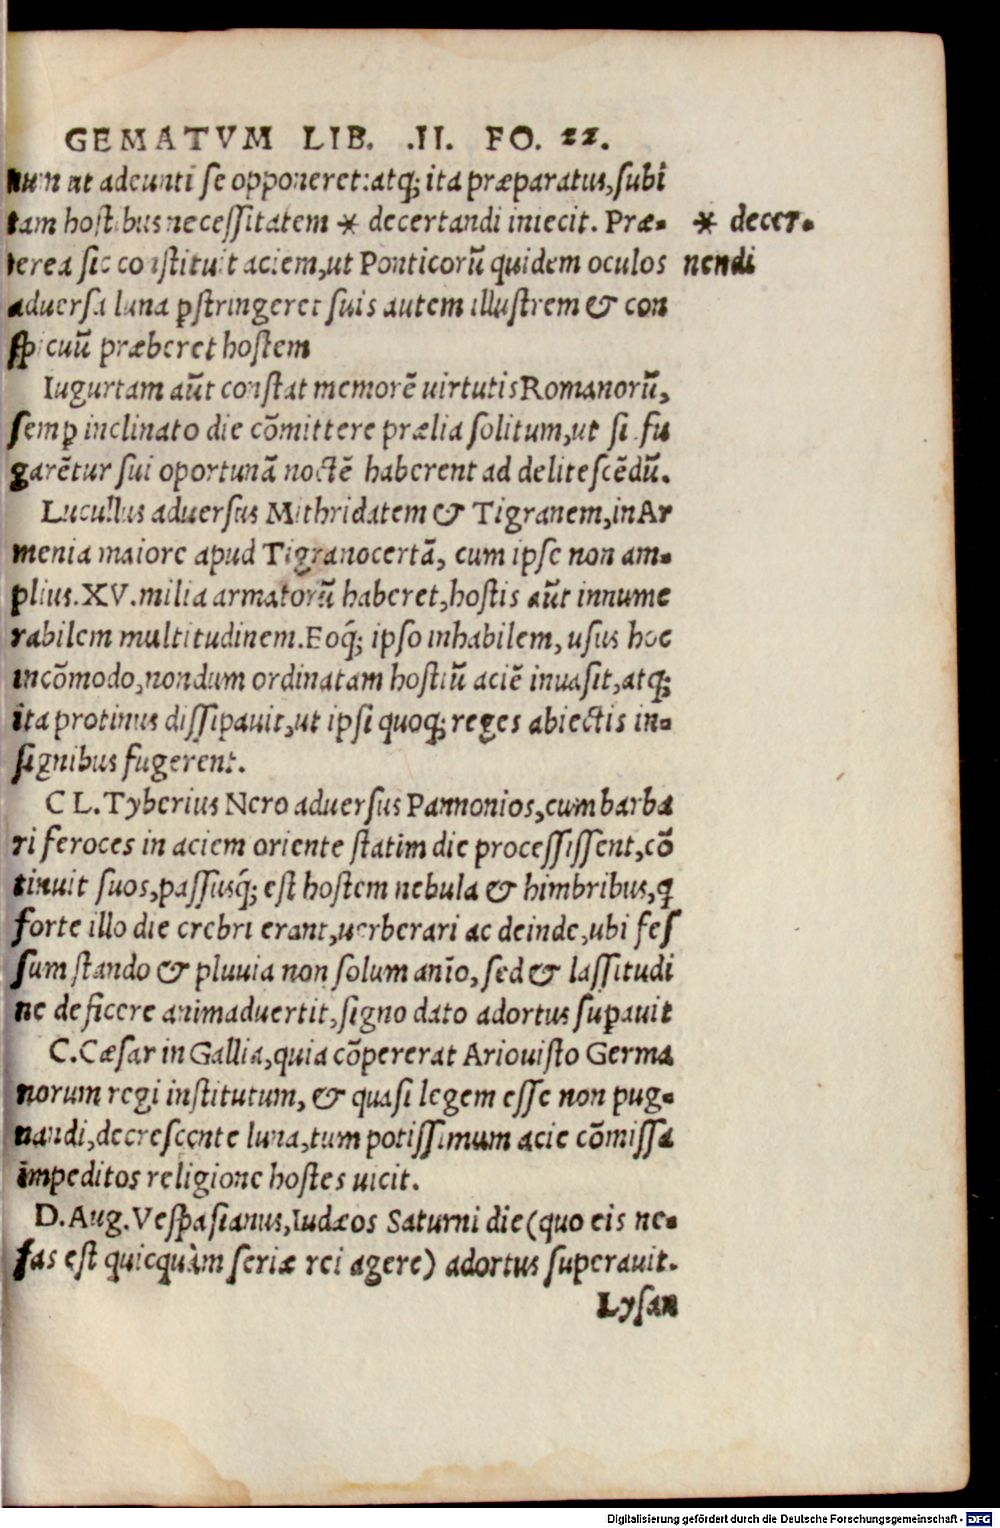 GEMATVM LIB. .II. FO. 22.
num ut adeunti se opponeret:atq; ita præparatus,subi
tam hostibus necessitatem * decertandi iniecit. Præ-
* decer-
terea sic constituit aciem,ut Ponticorũ quidem oculos
nendi
aduersa luna ꝑstringeret suis autem illustrem & con
spicuũ præberet hostem
Iugurtam aũt constat memorẽ uirtutis Romanorũ,
semꝑ inclinato die cõmittere prælia solitum,ut si fu
garẽtur sui oportunã noctẽ haberent ad delitescẽdũ.
Lucullus aduersus Mithridatem & Tigranem,in Ar
menia maiore apud Tigranocertã, cum ipse non am-
plius.XV.milia armatorũ haberet,hostis aũt innume
rabilem multitudinem.Eoq̃; ipso inhabilem, usus hoc
incõmodo,nondum ordinatam hostiũ aciẽ inuasit,atq;
ita protinus dissipauit,ut ipsi quoq; reges abiectis in-
signibus fugerent.
C L.Tyberius Nero aduersus Pannonios,cum barba
ri feroces in aciem oriente statim die processissent,cõ
tinuit suos,passusq̃; est hostem nebula & himbribus,q̃
forte illo die crebri erant,uerberari ac deinde,ubi fes
sum stando & pluuia non solum anĩo, sed & lassitudi
ne deficere animaduertit,signo dato adortus suꝑauit
C.Cæsar in Gallia,quia cõpererat Ariouisto Germa
norum regi institutum, & quasi legem esse non pug-
nandi,decrescente luna,tum potissimum acie cõmissa
impeditos religione hostes uicit.
D.Aug.Vespasianus,Iudæos Saturni die(quo eis ne-
fas est quicquàm seriæ rei agere) adortus superauit.
Lysan
Digitalisierung gefördert durch die Deutsche Forschungsgemeinschaft - DFG